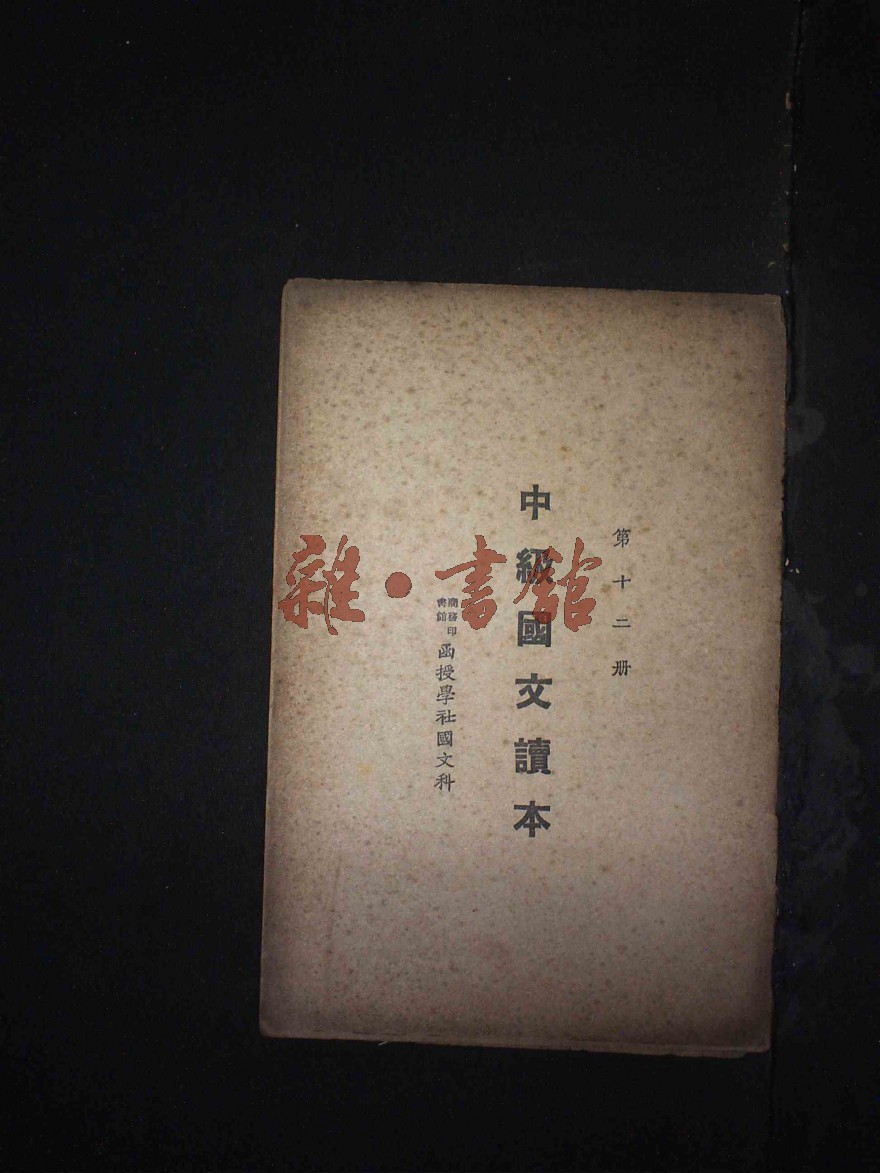 第十二册
中級國文讀本
商務印書館函授學社國文科
雜·書館